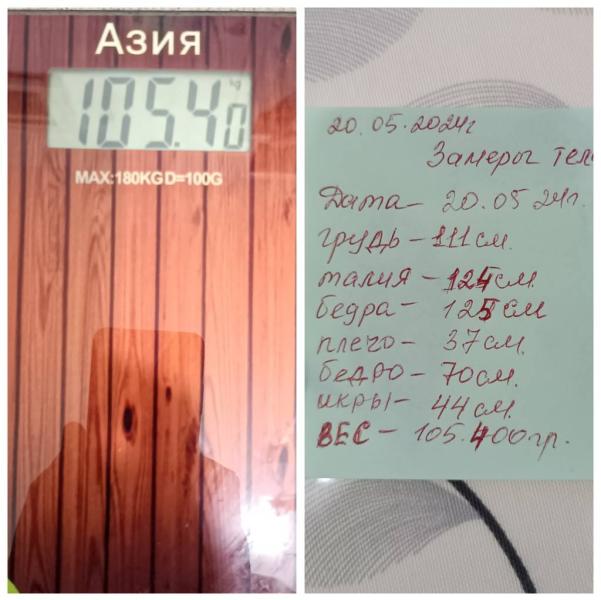 Азия
105.40
kg
MAX:180KG D=100G
20.05.2024г
Замеры тел
Дата - 20.05 24г.
грудь - 111 см.
талия - 124 см.
бедра - 125 см
плечо - 37 см.
бедро - 70 см.
икры - 44 см.
ВЕС - 105.400 гр.